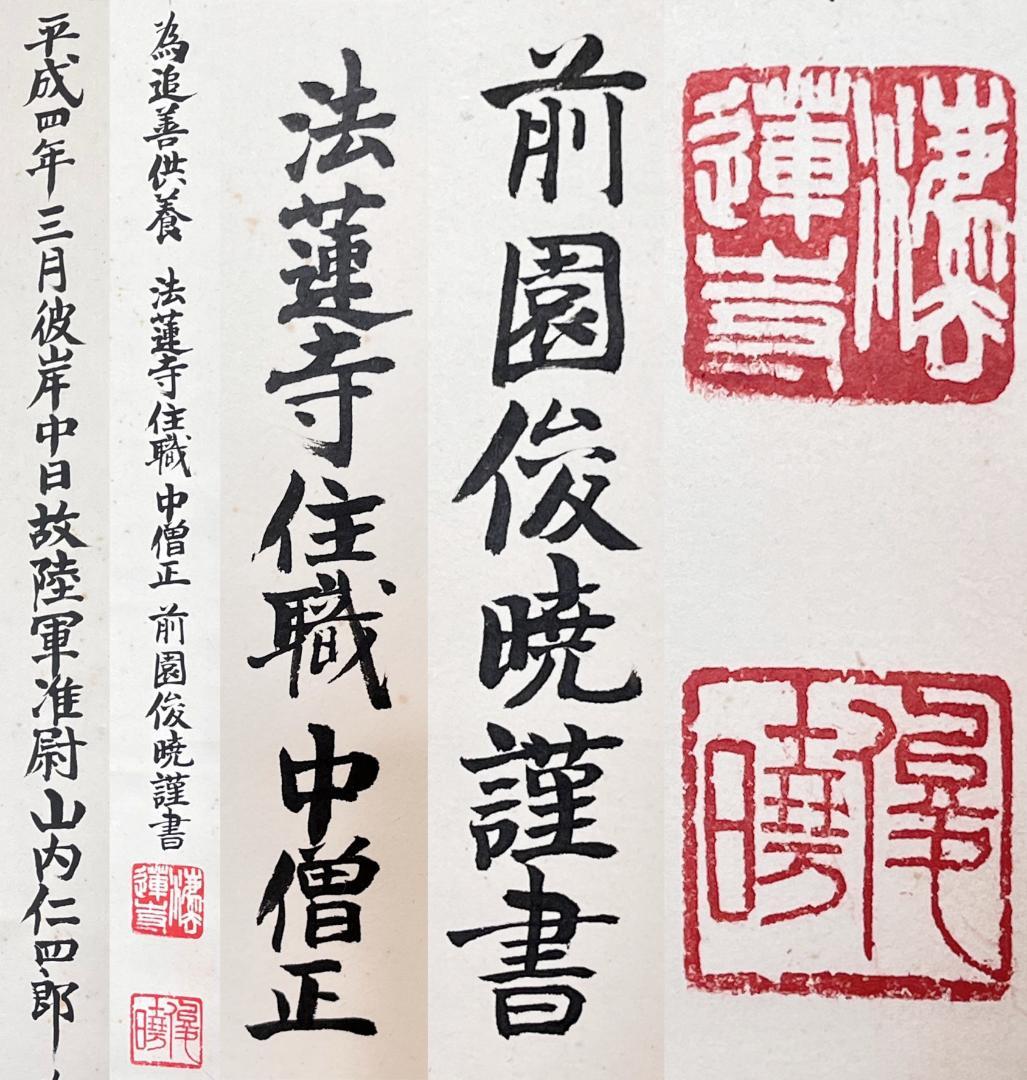 平成四年三月彼岸中日故陸軍准尉山内仁四郎
為追善供養 法蓮寺住職 中僧正 前園俊暁謹書
灋蓮寺
俊曉
法蓮寺住職 中僧正
前園俊暁謹書
灋蓮寺
俊曉